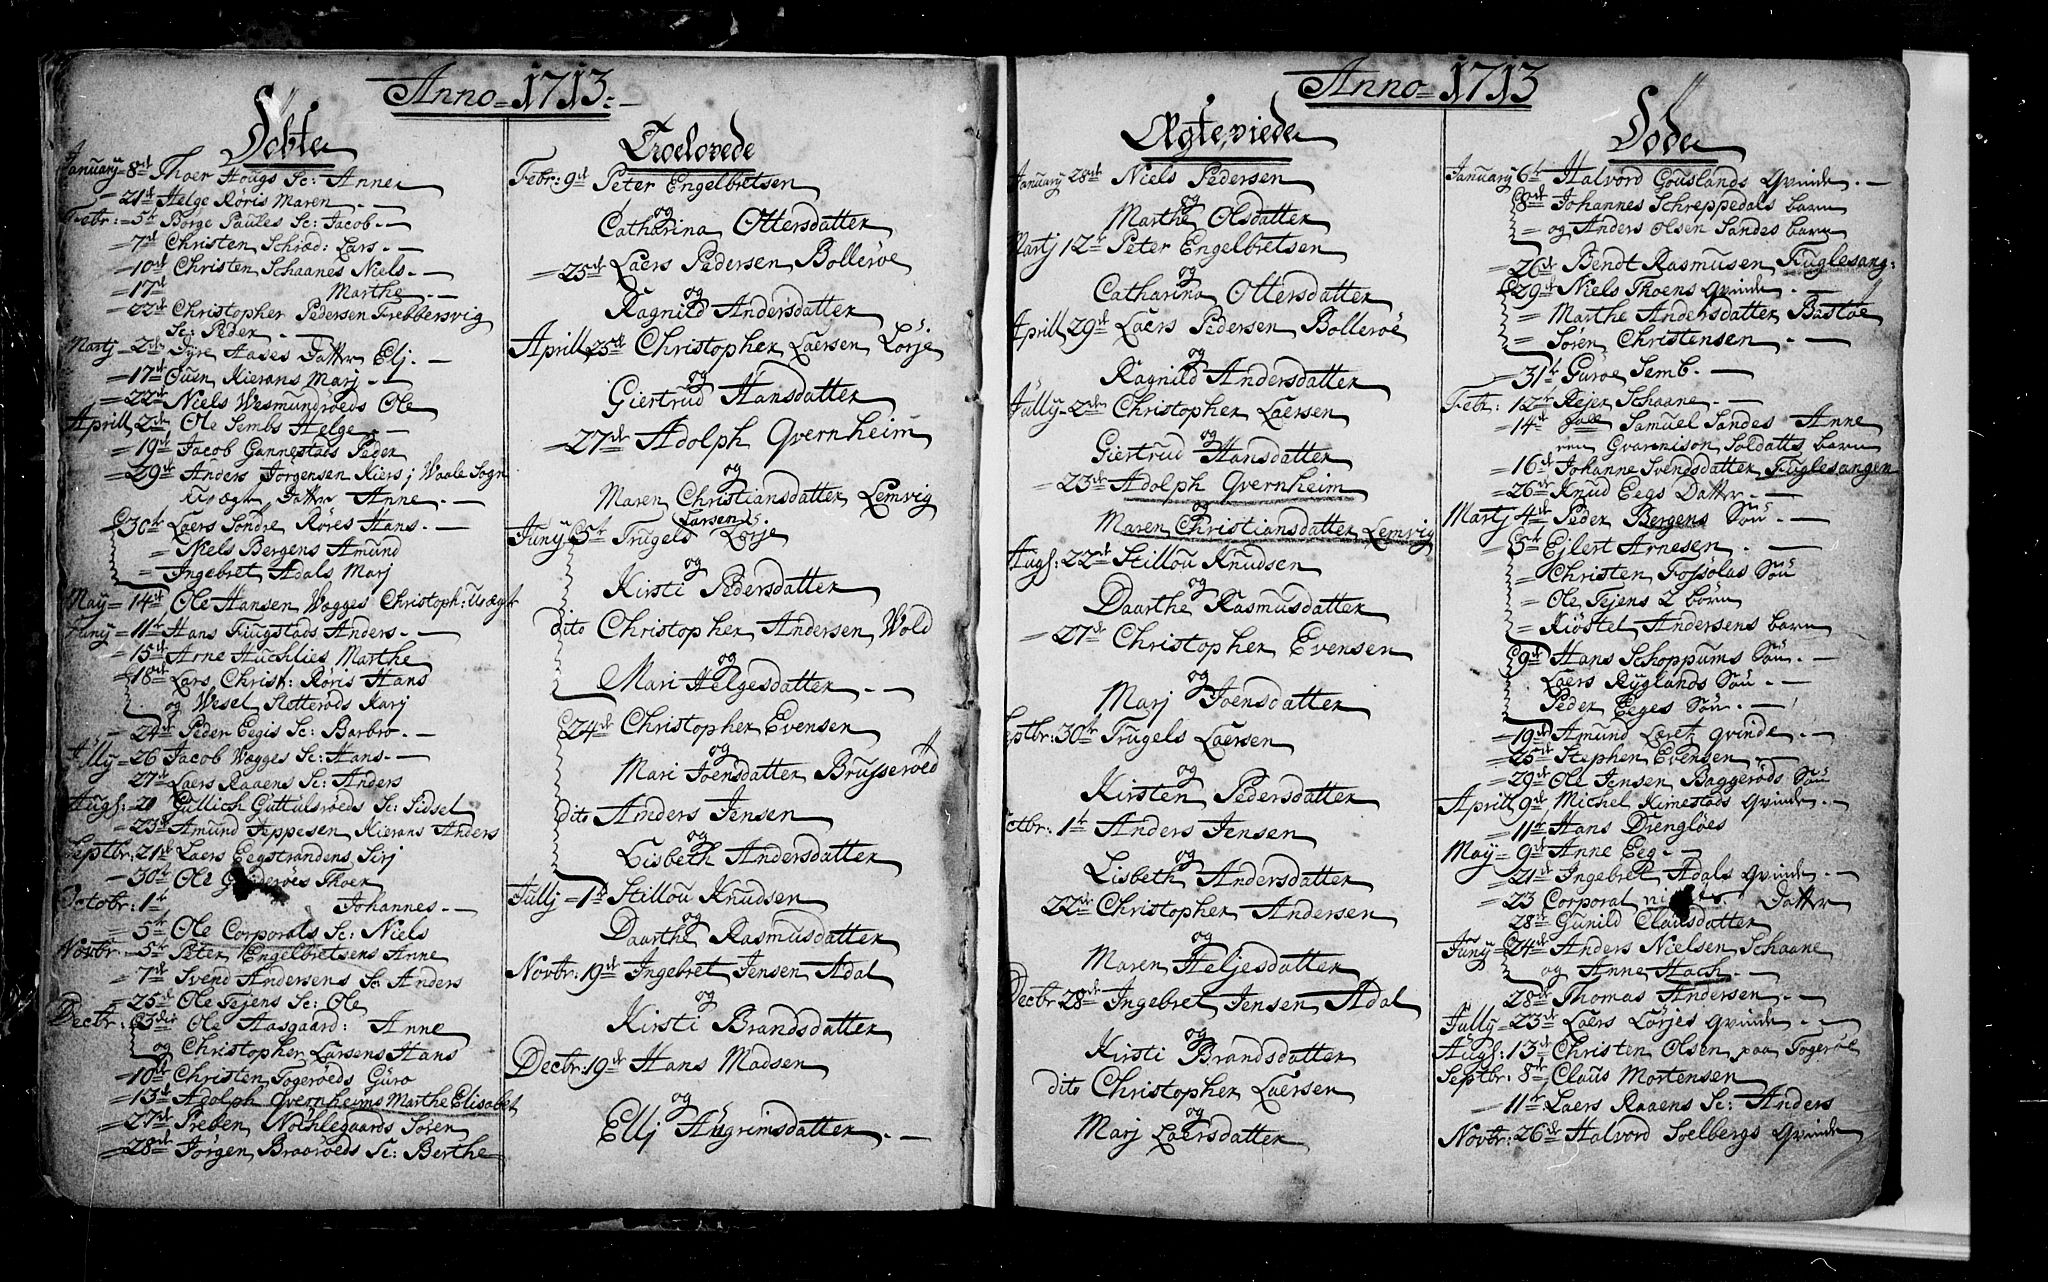 Anno 1713.
Döbte
January 8de Thoer Hougs Sc: Anne
21de Helge Röris Maren
Febr: 5te Börge Paules Sc: Jacob
7de Christen Schiæd: Lars
10de Christen Schaanes Niels
17de Marthe
22de Christopher Pedersen Trebbersvig
Sc: Peder
Martj 2de Dyre Aases Datter Elj
17de Ouen Kierans Marj
22de Niels Wesmundröeds Ole
Aprill 2de Ole Sembs Helge
19de Jacob Gannestads Peder
29de Anders Jörgensen Kiers i Waale Sogn
Datter Anne
30te Laers Söndre Röres Hans
Niels Bergens Amund
Ingebret Adals Marj
May 14de Ole Hansen Wægges Christoph: Uægt
Juny 11te Hans Fiugstads Anders
15de Arne Auchlies Marthe
18de Lars Christ: Röris Hans
og Wesel Slotteröds Karj
24de Peder Eegis Sc: Barbro
Jully 26 Jacob Wægges Sc: Hans
27de Laers Raaens Sc: Anders
Augs: 20 Gullich Guttulsröeds Sc: Sidsel
23de Amund Jeppesen Kierans Anders
Septbr: 21de Laers Eegstrandens Sirj
30te Ole Thoer
Octobr: 1te Johannes
5te Ole Corporals Sc: Niels
Novbr 5te Peter Engelbretsens Anne
7de Svend Andersens Sc Anders
25de Ole Tejens Sc: Ole
Decbr: 3die Ole Aasgaard: Anne
og Christopher Larsens Hans
10de Christen Togeröeds Guro
13de Adolph Qvernheims Marthe Elisabet
27de Preben Nöchlegaards Sören
28de Jörgen Braaröeds Sc: Berthe
Troelovede
Febr: 9de Peter Engelbretsen
og
Catharina Ottersdatter
25de Laers Pedersen Bolleröe
og
Ragnild Andersdatter
Aprill 23de Christopher Laersen Lörje
og
Giertrud Hansdatter
27de Adolph Qvernheim
og
Maren Christiansdatter Lemvig
Larsen
Juny 5te Trugels Lörje
og
Kirsti Pedersdatter
dito Christopher Andersen Wold
og
Mari Helgesdatter
24de Christopher Evensen
og
Mari Joensdatter Brusseröed
dito Anders Jensen
og
Lisbeth Andersdatter
Jullj 1te Stillou Knudsen
og
Daarthe Rasmusdatter
Novbr: 19de Ingebret Jensen Adal
og
Kirsti Brandsdatter
Decbr: 19de Hans Madsen
og
Ellj Angrimsdatter
Anno 1713
Ægteviede
January 28de Niels Pedersen
og
Marthe Olsdatter
Martj 12te Peter Engelbretsen
og
Catharina Ottersdatter
Aprill 29de Laers Pedersen Bolleröe
og
Ragnild Andersdatter
Jully 2den Christopher Laersen
og
Giertrud Hansdatter
23de Adolph Qvernheim
og
Maren Christiansdatter Lemvig
Augs: 22de Stillou Knudsen
og
Daarthe Rasmusdatter
27de Christopher Evensen
og
Marj Joensdatter
Septbr: 30te Trugels Laersen
og
Kirsten Pedersdatter
Octbr: 1te Anders Jensen
og
Lisbeth Andersdatter
22de Christopher Andersen
og
Maren Heljesdatter
Decbr 28de Ingebret Jensen Adal
og
Kirsti Brandsdatter
dito Christopher Laersen
og
Marj Laersdatter
Döde
January 6te Halvord Gouslands Qvinde
8de Johannes Schreppedals barn
og Anders Olsen Sandes barn
26de Bendt Rasmusen Fuglesang:
29de Niels Thoens Qvinde
Marthe Andersdatter Bastöe
Sören Christensen
31te Guroe Semb
Febr: 12te Rejer Schaane
14de Samuel Sandes Anne
en Gvarnison Soldatts barn
16de Johanne Svendsdatter Fuglesangen
26de Knud Eegs Datter
Martj 4de Peder Bergens Sön
5te Ejlert Arnesen
Christen Fossölas Sön
Ole Tejens 2 börn
Kiöstel Andersens barn
9de Hans Schoppums Sön
Laers Ryglands Sön
Peder Eeges Sön
19de Amund Læret Qvinde
25de Stephen Evensen
29de Ole Jensen Baggeröds Sön
Aprill 9de Michel Kimestads Qvinde
11te Hans Dienglöes
May 9de Anne Eeg
21de Ingebret Adals Qvinde
23 Corporal Datter
28de Gunild Clausdatter
Juny 24de Anders Nielsen Schaane
og Anne Hach
28de Thomas Andersen
Jully 23de Laers Lörjes Qvinde
Augs: 13de Christen Olsen paa Togeröe
Septbr: 8de Claus Mortensen
11te Laers Raaens Sc: Anders
Novbr: 26de Halvord Soelbergs Qvinde